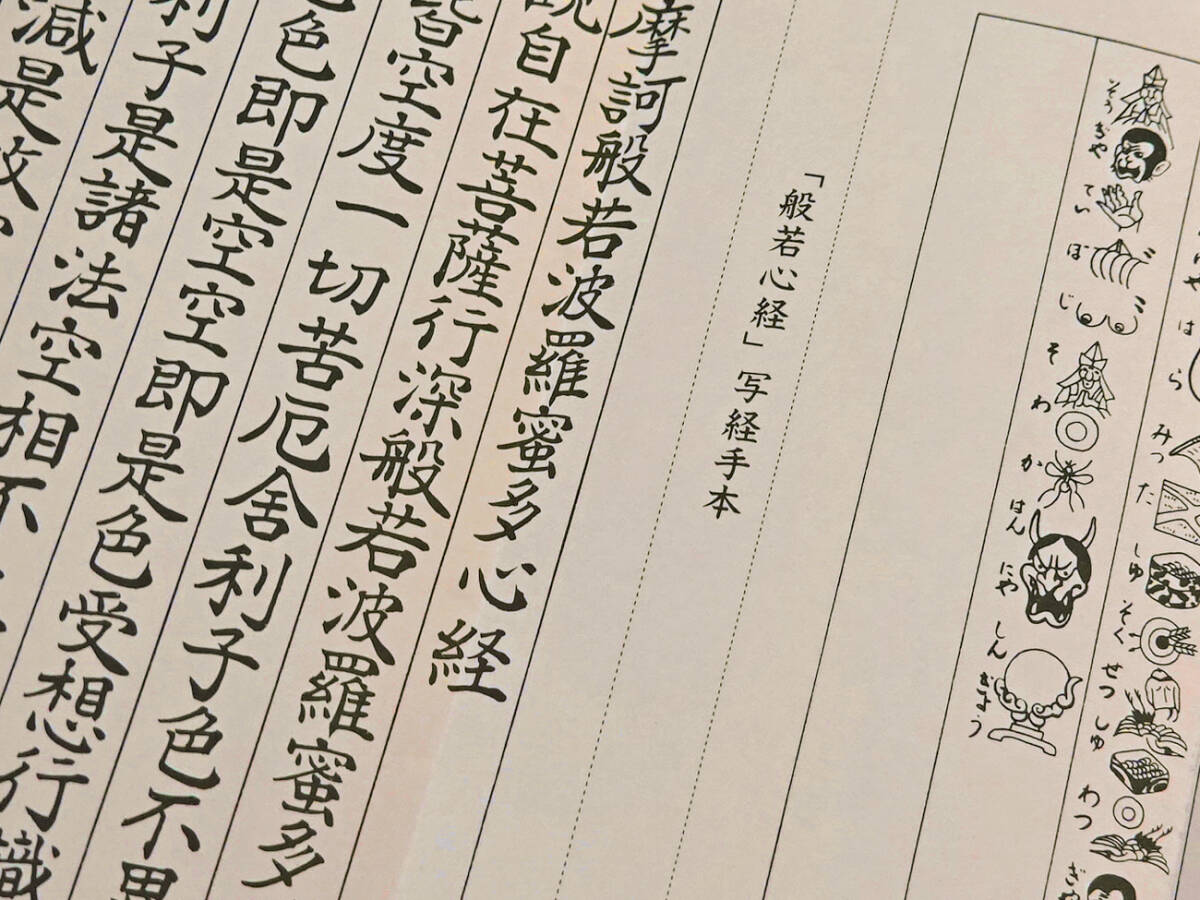 や は ら みつ た しゅ そく せつ しゅ わつ ぎや
そう ぎや てい ぼ じ そ わ か はん にや しん ぎょう
「般若心経」写経手本
摩訶般若波羅蜜多心経
自在菩薩行深般若波羅蜜多
皆空度一切苦厄舎利子色不
色色即是空空即是色受想行識
利子是諸法空相不
滅是故